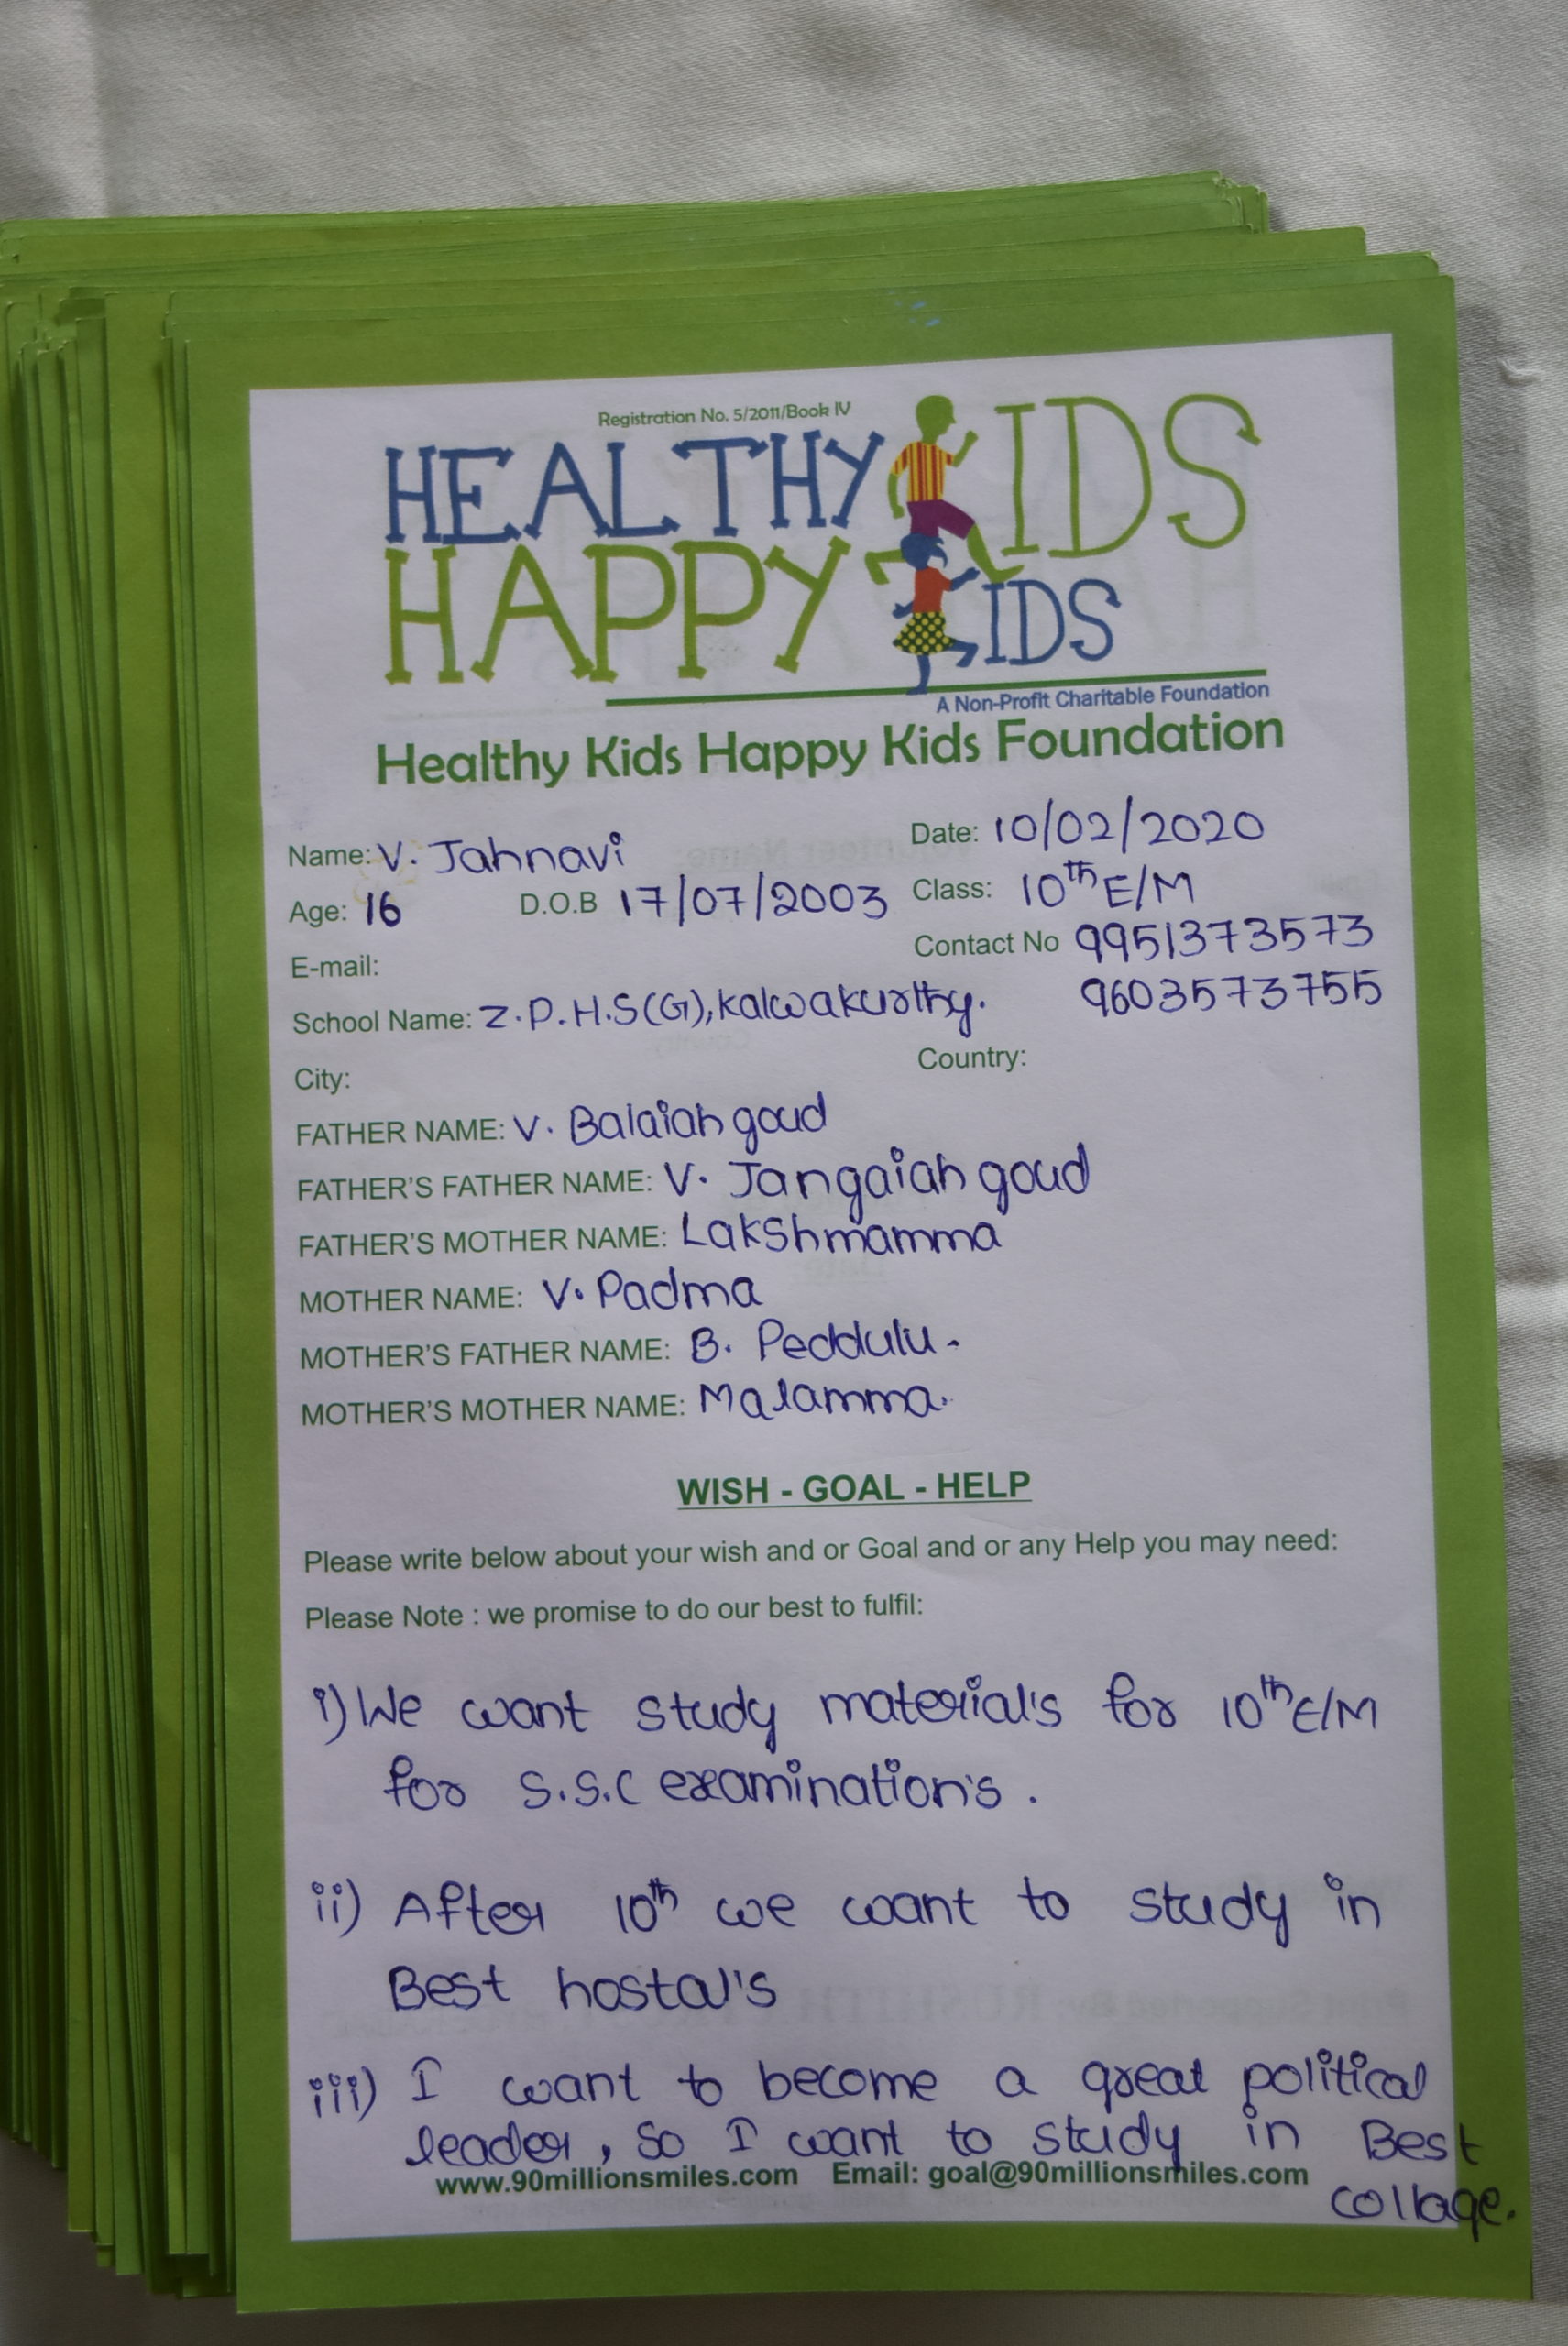 Registration No. 5/2011/Book IV
HEALTHY KIDS
HAPPY KIDS
A Non-Profit Charitable Foundation
Healthy Kids Happy Kids Foundation
Name: V. Jahnavi Date: 10/02/2020
Age: 16 D.O.B 17/07/2003 Class: 10th E/M
E-mail: Contact No 9951373573
School Name: Z.P.H.S(G), Kalwakurthy. 9603573755
City: Country:
FATHER NAME: V. Balaiah goud
FATHER'S FATHER NAME: V. Jangaiah goud
FATHER'S MOTHER NAME: Lakshmamma
MOTHER NAME: V. Padma
MOTHER'S FATHER NAME: B. Peddulu.
MOTHER'S MOTHER NAME: Malamma.
WISH - GOAL - HELP
Please write below about your wish and or Goal and or any Help you may need:
Please Note : we promise to do our best to fulfil:
i) We want study material's for 10th E/M
for S.S.C examination's.
ii) After 10th we want to study in
Best hostal's
iii) I want to become a great political
leader, so I want to study in Best
collage.
www.90millionsmiles.com Email: goal@90millionsmiles.com